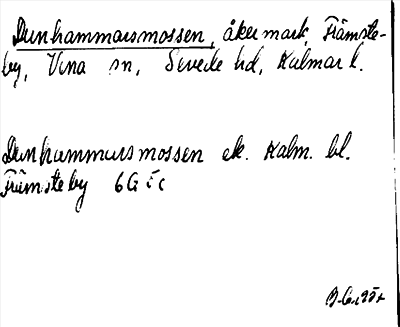 Dunhammarsmossen, åkermark, Främste-
by, Vena sn, Sevede hd, Kalmar l.
Dunhammarsmossen ek. Kalm. bl.
Främsteby 6G